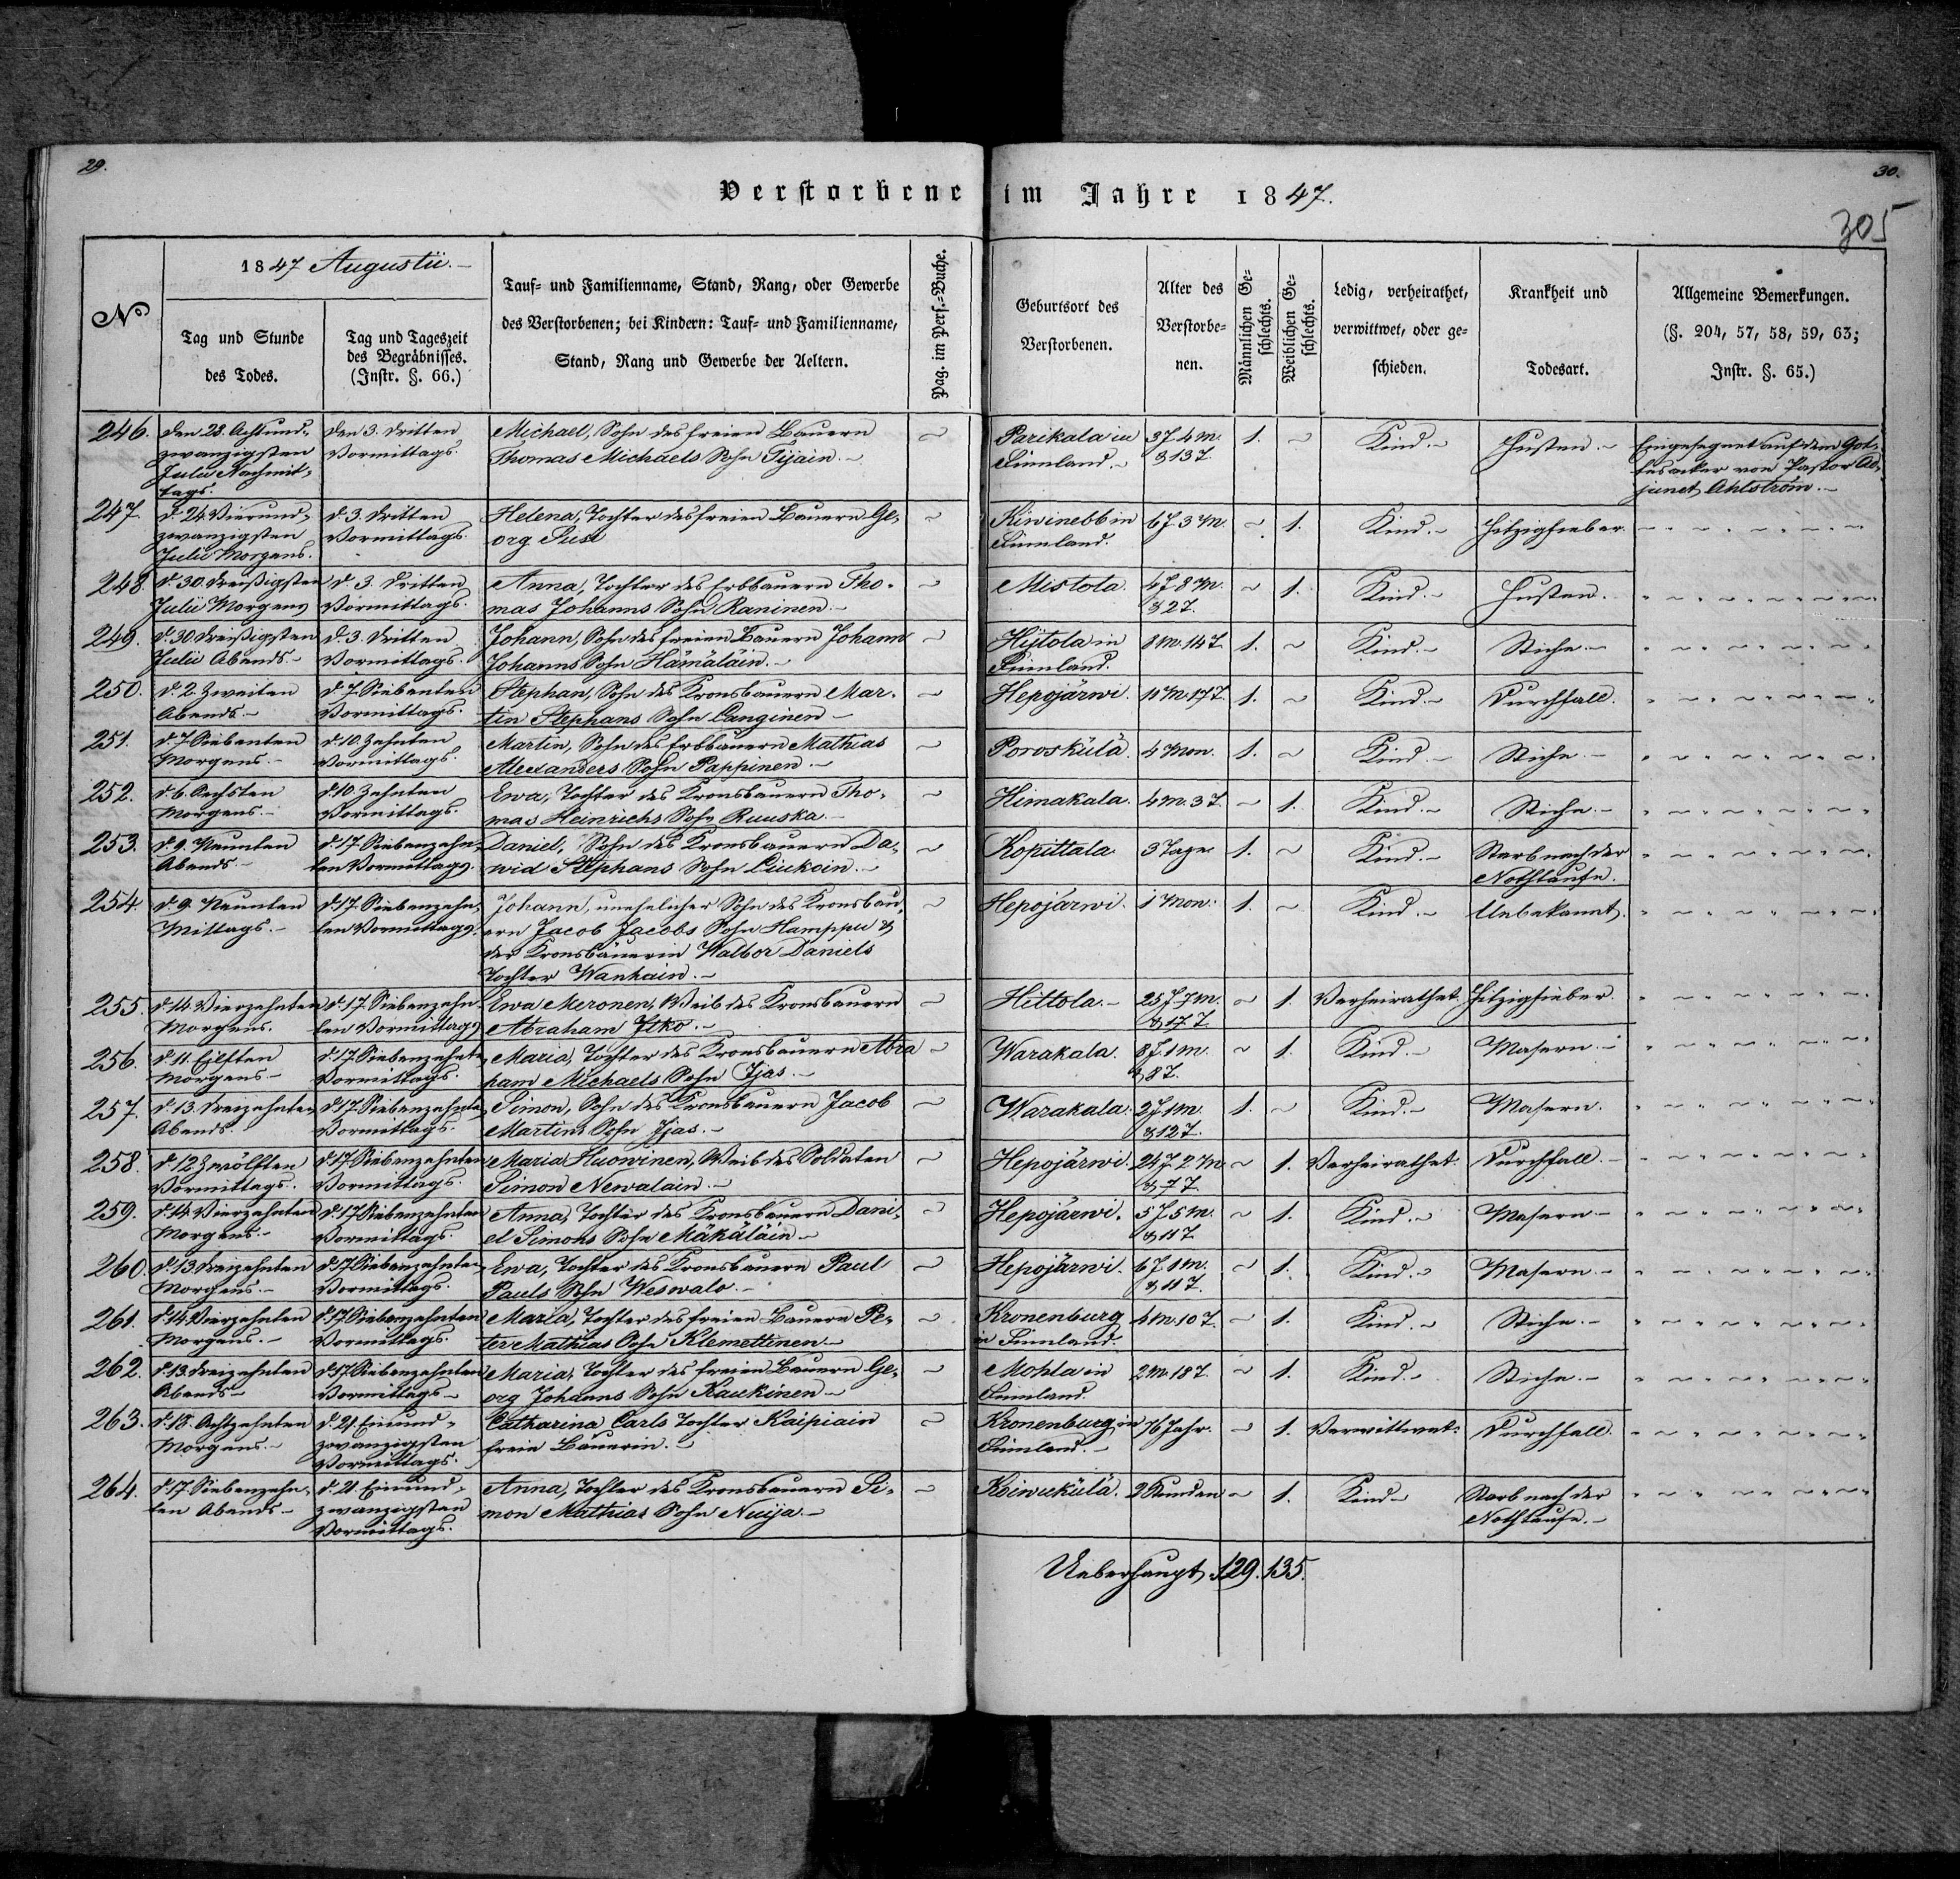 29.
30.
Verstorbene im Jahre 1847.
305
№
1847 Augustii.
Tag und Stunde
des Todes.
Tag und Tageszeit
des Begräbnisses.
(Instr. §. 66.)
Tauf- und Familienname, Stand, Rang, oder Gewerbe
des Verstorbenen; bei Kindern: Tauf- und Familienname,
Stand, Rang und Gewerbe der Aeltern.
Pag. im Pers.-Buche.
Geburtsort des
Verstorbenen.
Alter des
Verstorbe-
nen.
Männlichen Ge-
schlechts.
Weiblichen Ge-
schlechts.
Ledig, verheirathet,
verwittwet, oder ge-
schieden.
Krankheit und
Todesart.
Allgemeine Bemerkungen.
(§. 204, 57, 58, 59, 63;
Instr. §. 65.)
246.
den 28. Achtund-
zwanzigsten
Julii Nachmit-
tags.
den 3. dritten
Vormittags.
Michael, Sohn des freien Bauern
Thomas Michaels Sohn Tijain.
Parikala in
Finnland.
3 J. 4 M.
& 13 T.
1.
Kind.
Husten.
Eingesegnet auf dem Got-
tesacker von Pastor Ad-
junct Ahlström.
247.
d. 24. Vierund-
zwanzigsten
Julii Morgens.
d. 3. dritten
Vormittags.
Helena, Tochter des freien Bauern Ge-
org Susi
Kiwinebb in
Finnland.
6 J. 3 M.
1.
Kind.
Hitzigfieber.
248.
d. 30. dreißigsten
Julii Morgens
d. 3. dritten
Vormittags.
Anna, Tochter des Erbbauern Tho-
mas Johanns Sohn Raninen.
Mistola.
4 J. 8 M.
& 2 T.
1.
Kind.
Husten.
249.
d. 30. dreißigsten
Julii Abends.
d. 3. dritten
Vormittags.
Johann, Sohn des freien Bauern Johann
Johanns Sohn Hämäläin.
Hijtola in
Finnland.
8 M. 14 T.
1.
Kind.
Stiche.
250.
d. 2. Zweiten
Abends.
d. 7. Siebenten
Vormittags.
Stephan, Sohn des Kronsbauern Mar-
tin Stephans Sohn Langinen
Hepojärwi.
11 M. 17 T.
1.
Kind.
Durchfall.
251.
d. 7. Siebenten
Morgens.
d. 10. Zehnten
Vormittags.
Martin, Sohn des Erbbauern Mathias
Alexanders Sohn Pappinen.
Poroskülä.
4 Mon.
1.
Kind.
Stiche.
252.
d. 6. Sechsten
Morgens.
d. 10. Zehnten
Vormittags.
Ewa, Tochter des Kronsbauern Tho-
mas Heinrichs Sohn Ruuska.
Himakala.
4 M. 3 T.
1.
Kind.
Stiche.
253.
d. 9. Neunten
Abends.
d. 17. Siebenzehn-
ten Vormittags.
Daniel, Sohn des Kronsbauern Da-
wid Stephans Sohn Liukoin.
Kopittala.
3 Tage
1.
Kind.
Starb nach der
Nothtaufe.
254.
d. 9. Neunten
Mittags.
d. 17. Siebenzehn-
ten Vormittags.
Johann, unehelicher Sohn des Kronsbau-
ern Jacob Jacobs Sohn Hamppu &
der Kronsbäuerin Walbor Daniels
Tochter Wanhain.
Hepojärwi.
1 Mon.
1.
Kind.
Unbekannt.
255.
d. 14. Vierzehnten
Morgens.
d. 17. Siebenzehn-
ten Vormittags.
Ewa Meronen, Weib des Kronsbauern
Abraham Itko.
Hittola.
25 J. 7 M.
& 17 T.
1.
Verheirathet.
Hitzigfieber.
256.
d. 11. Eilften
Morgens
d. 17. Siebenzehnten
Vormittags.
Maria, Tochter des Kronsbauern Abra
ham Michaels Sohn Ijas.
Warakala.
8 J. 1 M.
& 8 T.
1.
Kind.
Masern.
257.
d. 13. dreizehnten
Abends.
d. 17. Siebenzehnten
Vormittags.
Simon, Sohn des Kronsbauern Jacob
Martins Sohn Ijas.
Warakala.
2 J. 1 M.
& 12 T.
1.
Kind.
Masern.
258.
d. 12. Zwölften
Vormittags.
d. 17. Siebenzehnten
Vormittags.
Maria Huowinen, Weib des Soldaten
Simon Newalain.
Hepojärwi
24 J. 2 M.
& 7 T.
1.
Verheirathet.
Durchfall.
259.
d. 14. Vierzehnten
Morgens.
d. 17. Siebenzehnten
Vormittags.
Anna, Tochter des Kronsbauern Dani-
el Simons Sohn Mäkäläin
Hepojärwi.
5 J. 5 M.
& 11 T.
1.
Kind.
Masern.
260.
d. 13. dreizehnten
Morgens.
d. 17. Siebenzehnten
Vormittags.
Ewa, Tochter des Kronsbauern Paul
Pauls Sohn Weswalo.
Hepojärwi.
6 J. 1 M.
& 11 T.
1.
Kind.
Masern.
261.
d. 14. Vierzehnten
Morgens.
d. 17. Siebenzehnten
Vormittags.
Maria, Tochter des freien Bauern Pe-
ter Mathias Sohn Klemettinen.
Kronenburg
in Finnland.
4 M. 10 T.
1.
Kind.
Stiche.
262.
d. 13. dreizehnten
Abends
d. 17. Siebenzehnten
Vormittags
Maria, Tochter des freien Bauern Ge-
org Johanns Sohn Kaukinen
Mohla in
Finnland.
2 M. 18 T.
1.
Kind.
Stiche.
263.
d. 18. Achtzehnten
Morgens.
d. 21. Einund-
zwanzigsten
Vormittags.
Catharina Carls Tochter Kaipiain
freie Bäuerin.
Kronenburg in
Finnland.
76 Jahr.
1.
Verwittwet.
Durchfall.
264.
d. 17. Siebenzehn-
ten Abends
d. 21. Einund-
zwanzigsten
Vormittags.
Anna, Tochter des Kronsbauern Si-
mon Mathias Sohn Nuija.
Koiwukülä.
2 Stunden
1.
Kind
Starb nach der
Nothtaufe.
Ueberhaupt 129. 135.